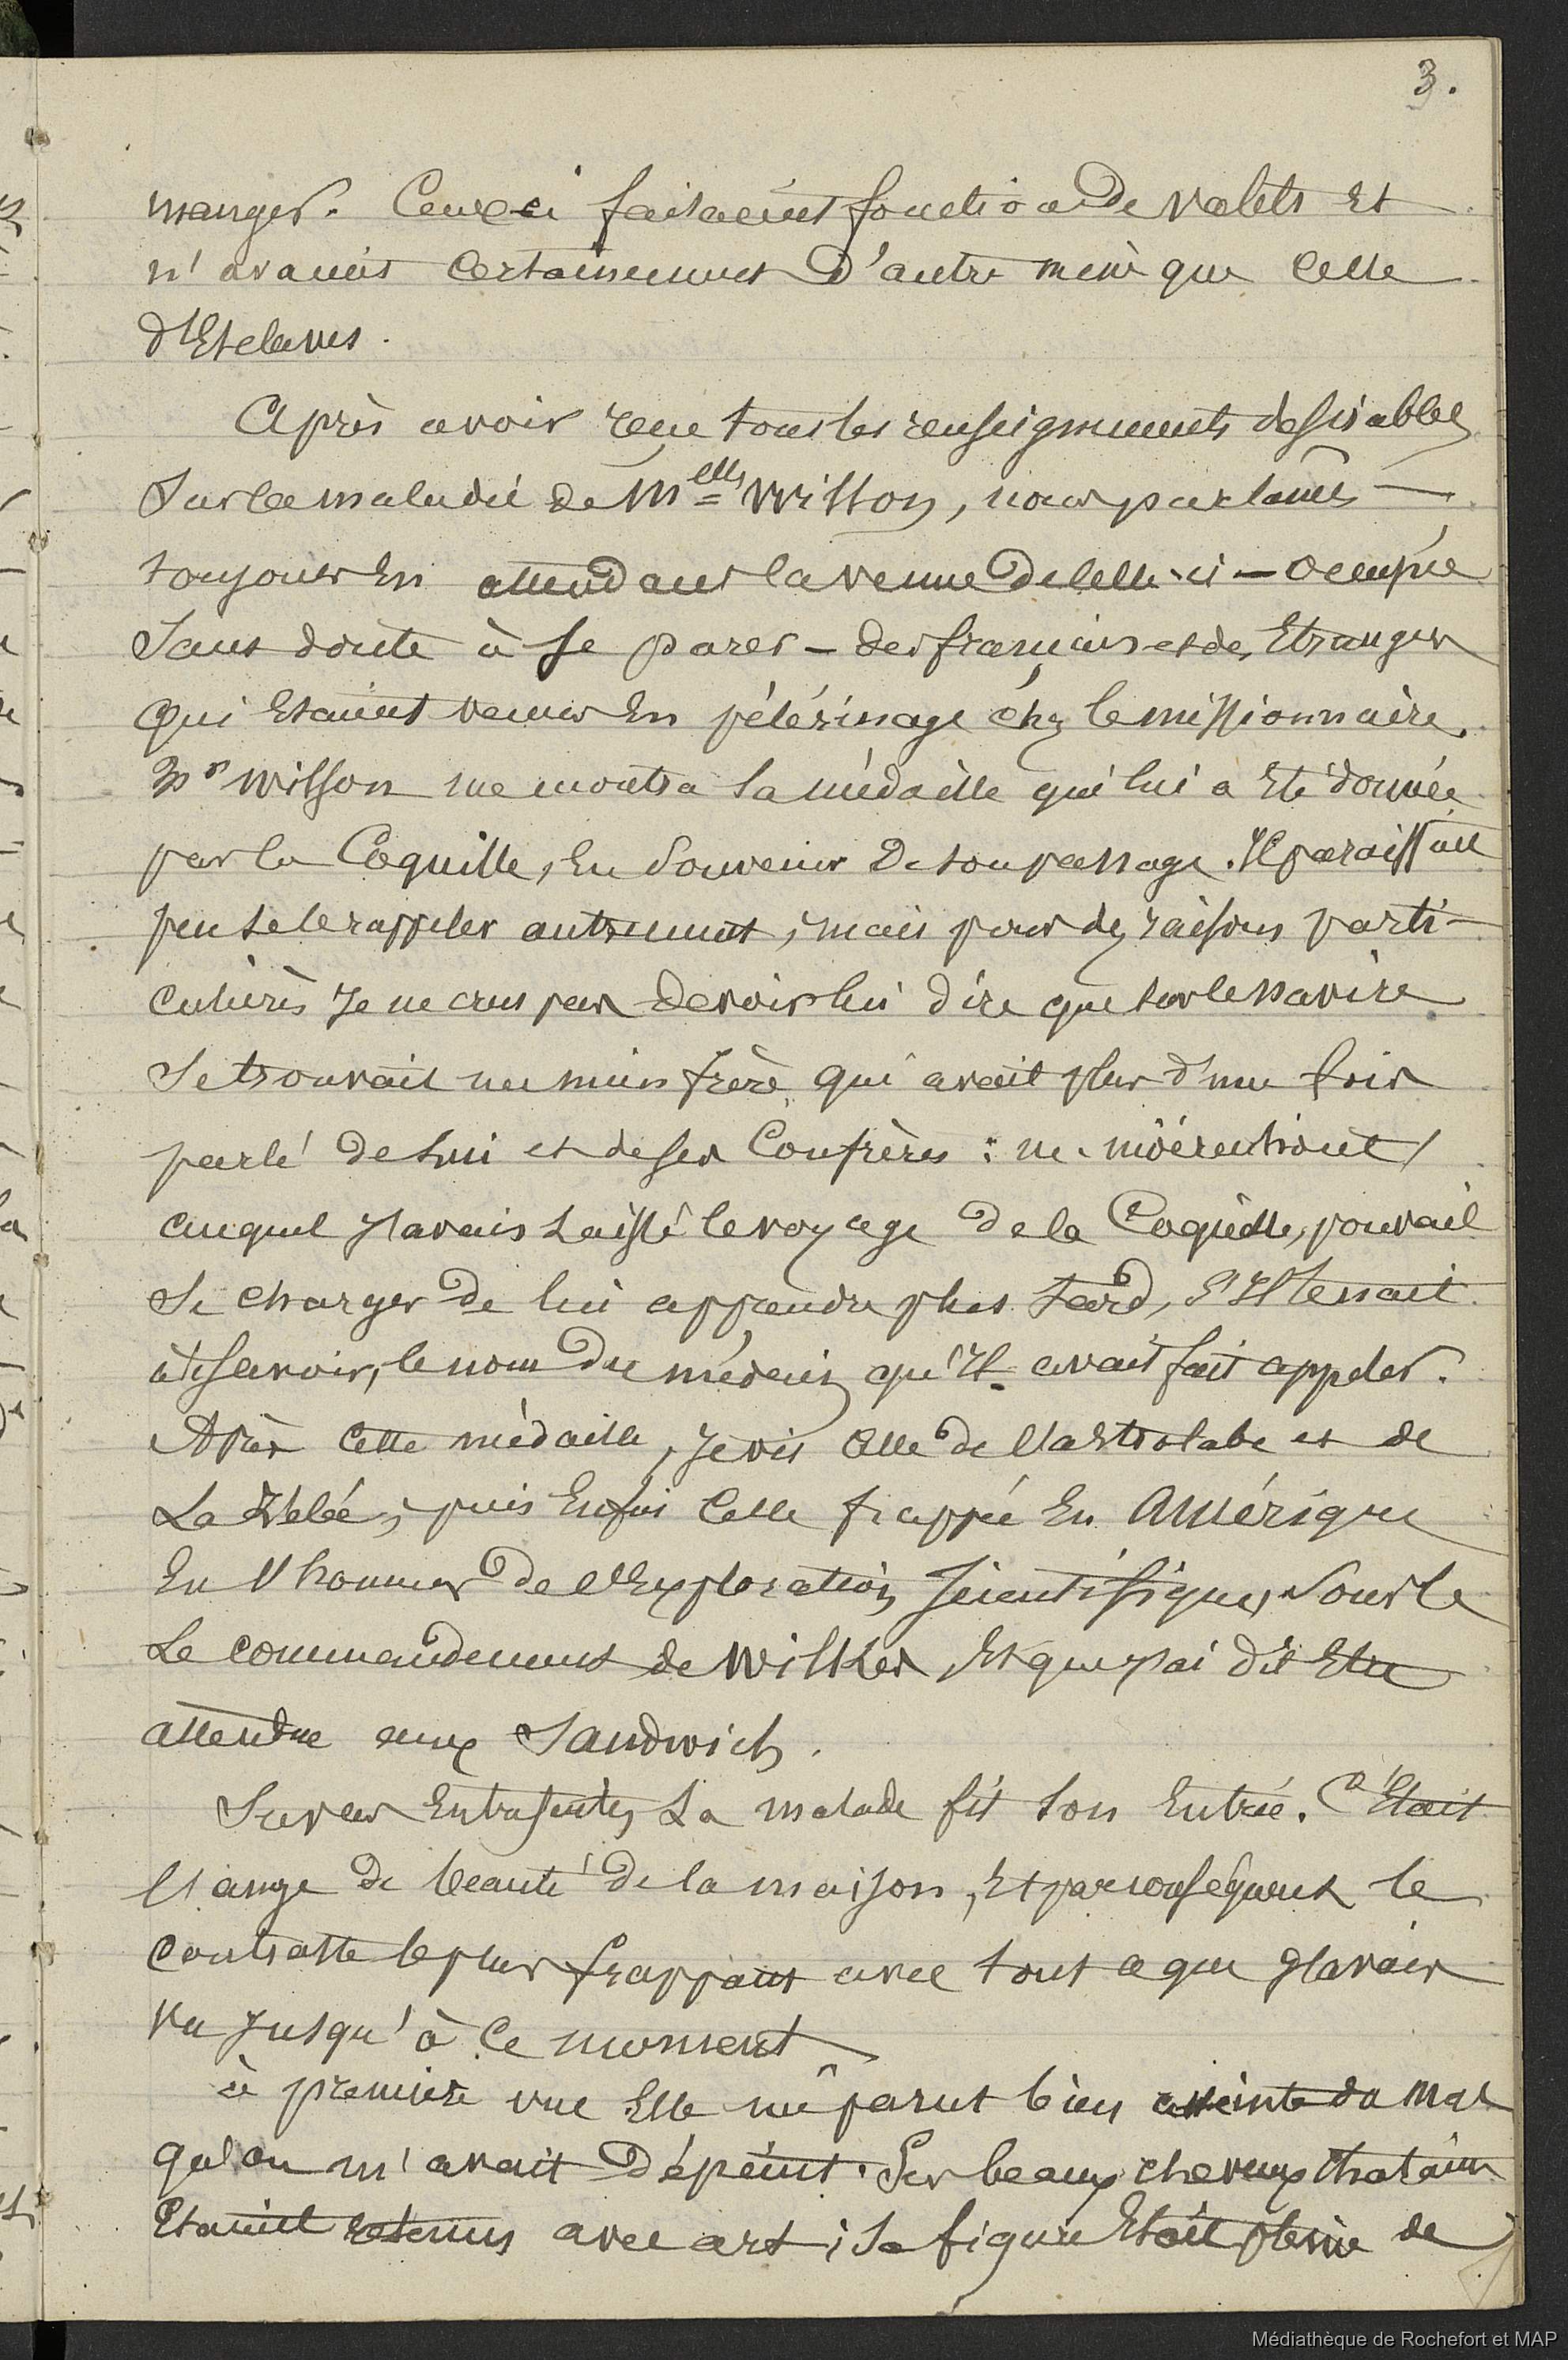 3.
manger. Ceux ci faisaient fonction de valets et
n'avaient certainement d'autre que celle
d'Esclaves.
Après avoir reçu tous les renseignements desirables
sur la maladie de Melle Wilson, nous parlâmes —
toujours en attendant la venue de celle-ci — occupée
sans doute à se parer — des français et des Etrangers
qui Etaient venus En pélérinage chéz le missionnaire.
Mr Wilson me montra la médaille qui lui a Eté donnée
par la Coquille, En souvenir de son passage. Il paraissait
peu se le rappeler autrement, mais pour des raisons parti-
culières Je ne crus pas devoir lui dire que sur le navire
se trouvait un mien frère qui avait plus d'une fois
parlé de lui et de ses Confrères :
auquel J'avais laissé le voyage de la Coquille, pouvait
se charger de lui apprendre plus tard, s'Il tenait
à le savoir, le nom du médecin qu'Il avait fait appeler.
Après cette médaille, Je vis celle de l'astrolabe et de
La Zélée, puis Enfin Celle frappée En Amérique
En l'honneur de l'Exploration scientifique, sous le
Le commandement de Wilkes Et que J'ai dit Etre
attendue aux Sandwich.
Sur ces Entrefaites, La malade fit son Entrée. C'Etait
l'ange de beauté de la maison, Et par conséquent le
contraste le plus frappant avec tout ce que J'avais
vu Jusqu'à ce moment
à première vue Elle me parut bien atteinte du mal
qu'on m'avait dépeint. Ses beaux cheveux chatains
Etaient retenus avec art ; sa figure Etait pleine de
Médiathèque de Rochefort et MAP